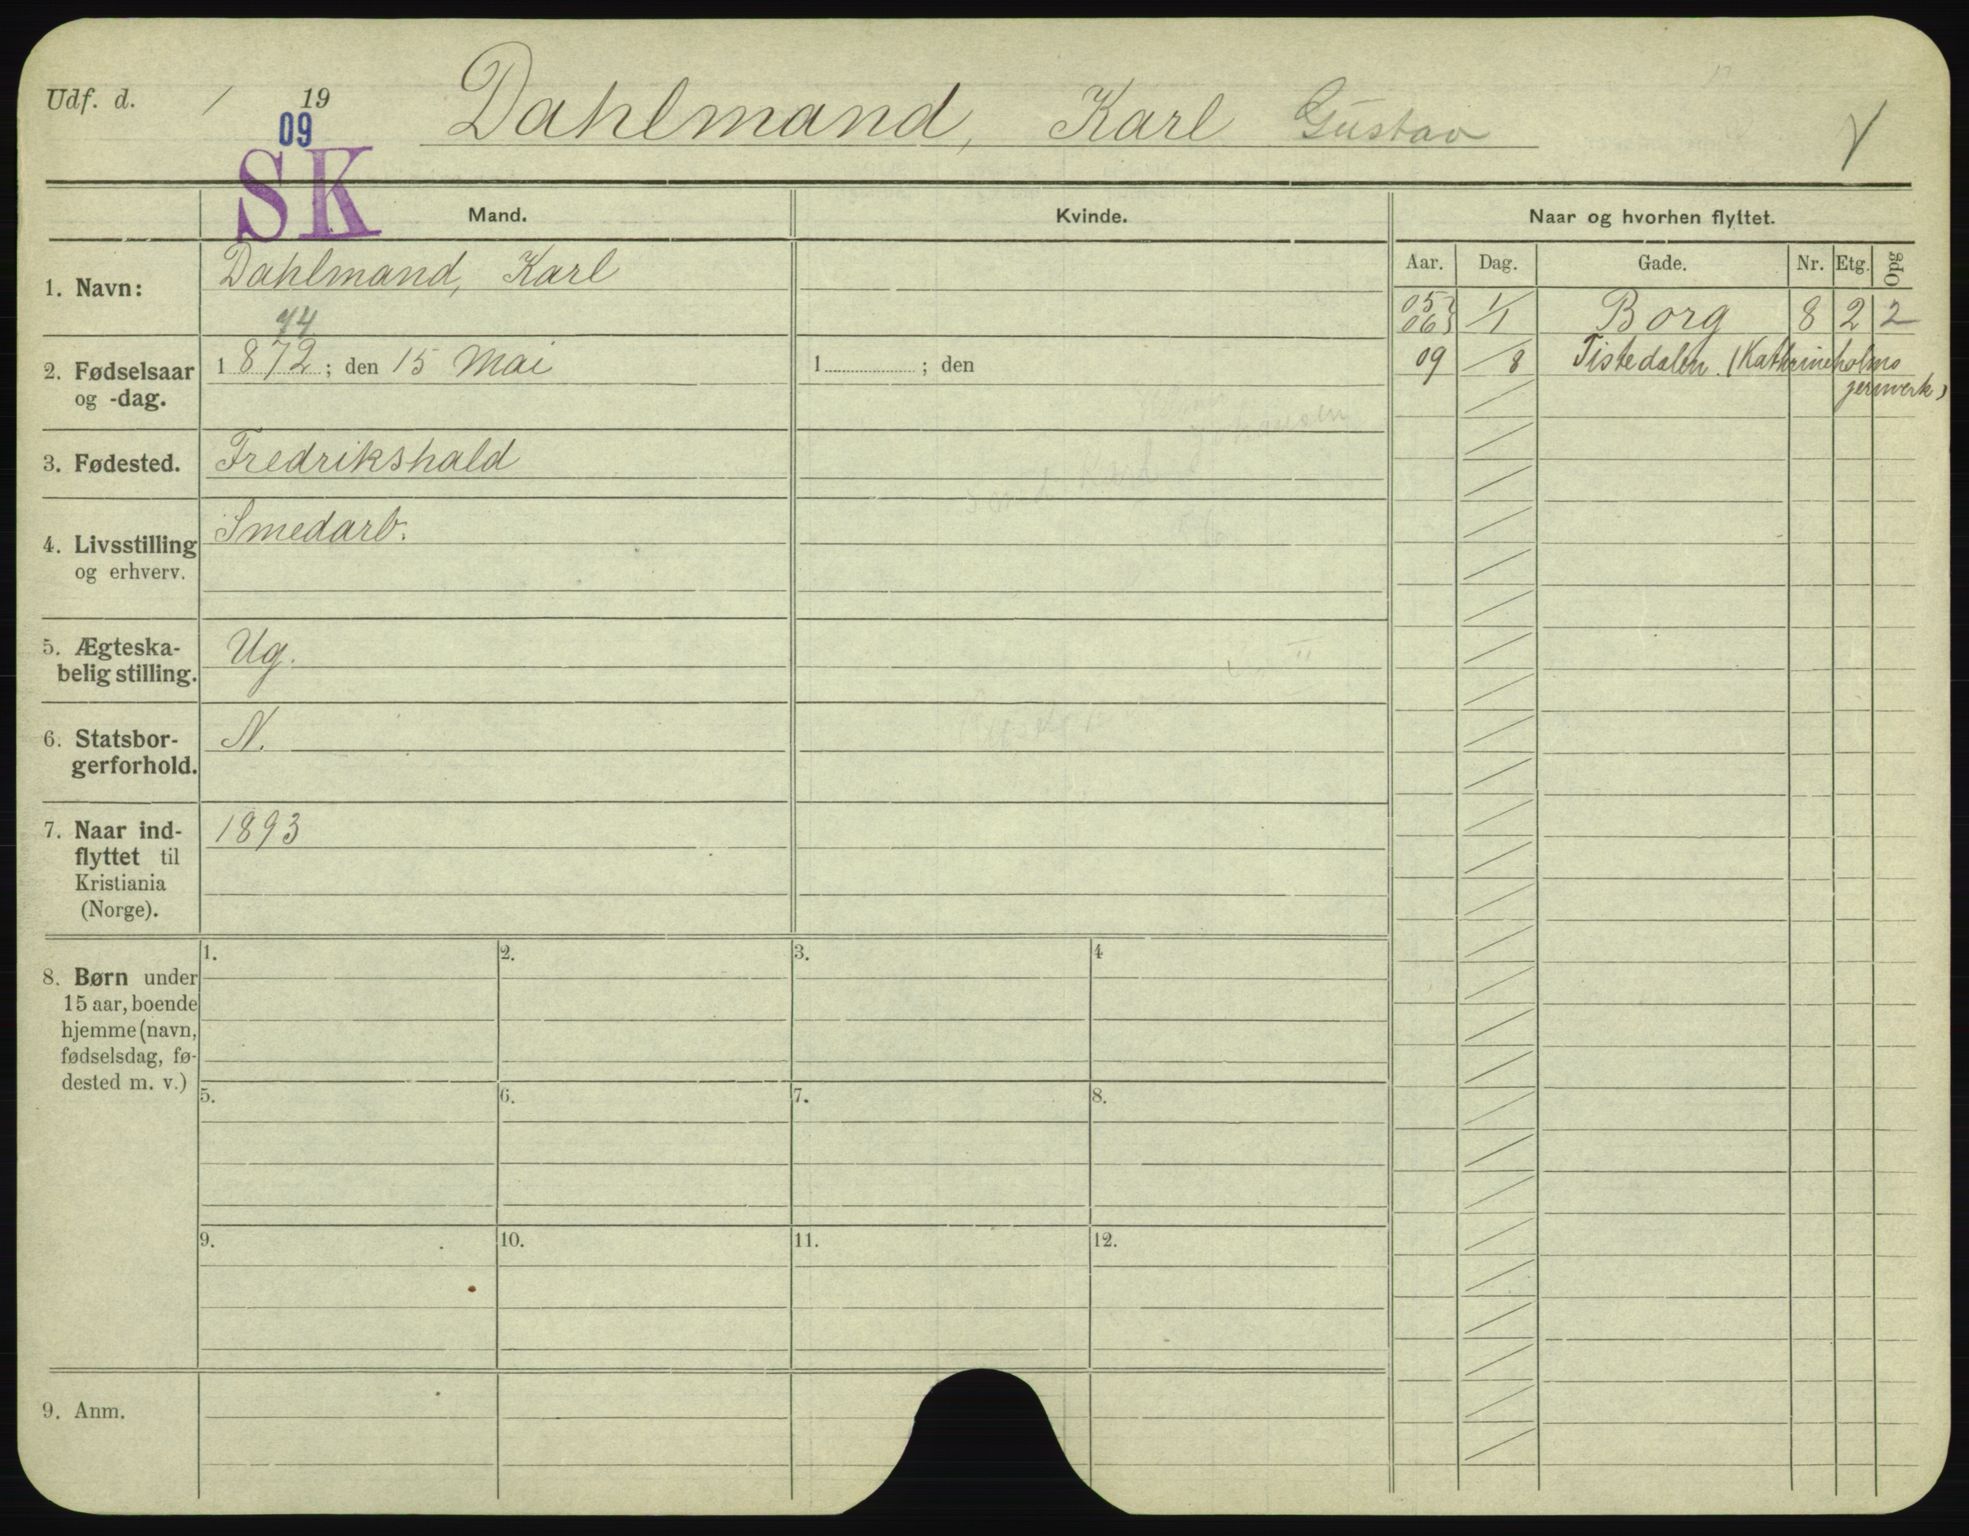 Udf. d. / 19
09
Dahlmand, Karl Gustav
SK
Mand.
Kvinde.
Naar og hvorhen flyttet.
Aar. Dag. Gade. Nr. Etg. Opg
1. Navn:
Dahlmand, Karl
05
06 1/1 Borg 8 2 2
09 / 8 Tistedalen. (Kathrineholms
jernverk)
74
2. Fødselsaar
og -dag.
1872; den 15 Mai
1 ; den
3. Fødested.
Fredrikshald
4. Livsstilling
og erhverv.
Smedarb.
5. Ægteska-
belig stilling.
Ug.
6. Statsbor-
gerforhold.
N.
7. Naar ind-
flyttet til
Kristiania
(Norge).
1893
8. Børn under
15 aar, boende
hjemme (navn,
fødselsdag, fø-
dested m. v.)
1. 2. 3. 4
5. 6. 7. 8.
9. 10. 11. 12.
9. Anm.